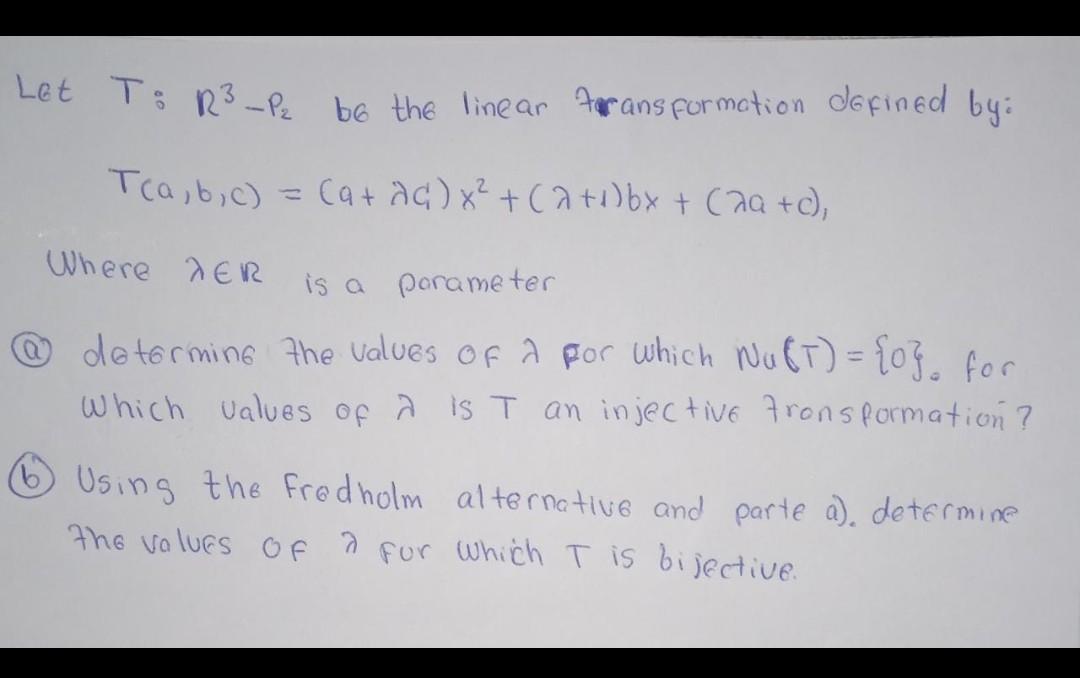 Let T: R³-P₂ be the linear transformation defined by:
T(a,b,c) = (a+λc)x²+(λ+1)bx + (λa+c),
Where λ∈R is a parameter
ⓐ determine the values of λ for which Nu(T)={0}. for
which values of λ is T an injective transformation?
ⓑ Using the Fredholm alternative and parte a). determine
the values of λ for which T is bijective.